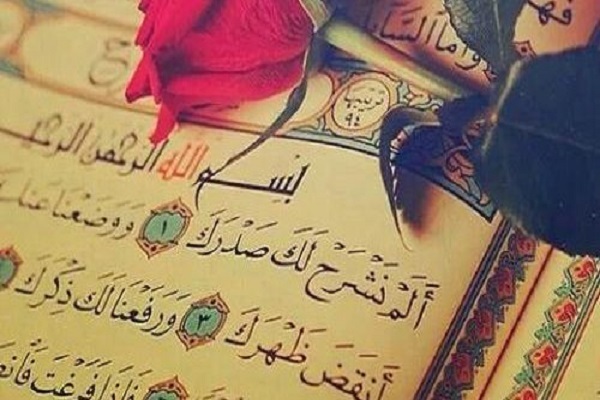 وَأَمَّا السَّا
ترتيبها
٩٤
بِسْمِ اللَّهِ الرَّحْمَٰنِ الرَّحِيمِ
أَلَمْ نَشْرَحْ لَكَ صَدْرَكَ ١ وَوَضَعْنَا عَنكَ
أَنقَضَ ظَهْرَكَ ٣ وَرَفَعْنَا لَكَ ذِكْرَكَ
فَإِذَا فَرَغْتَ